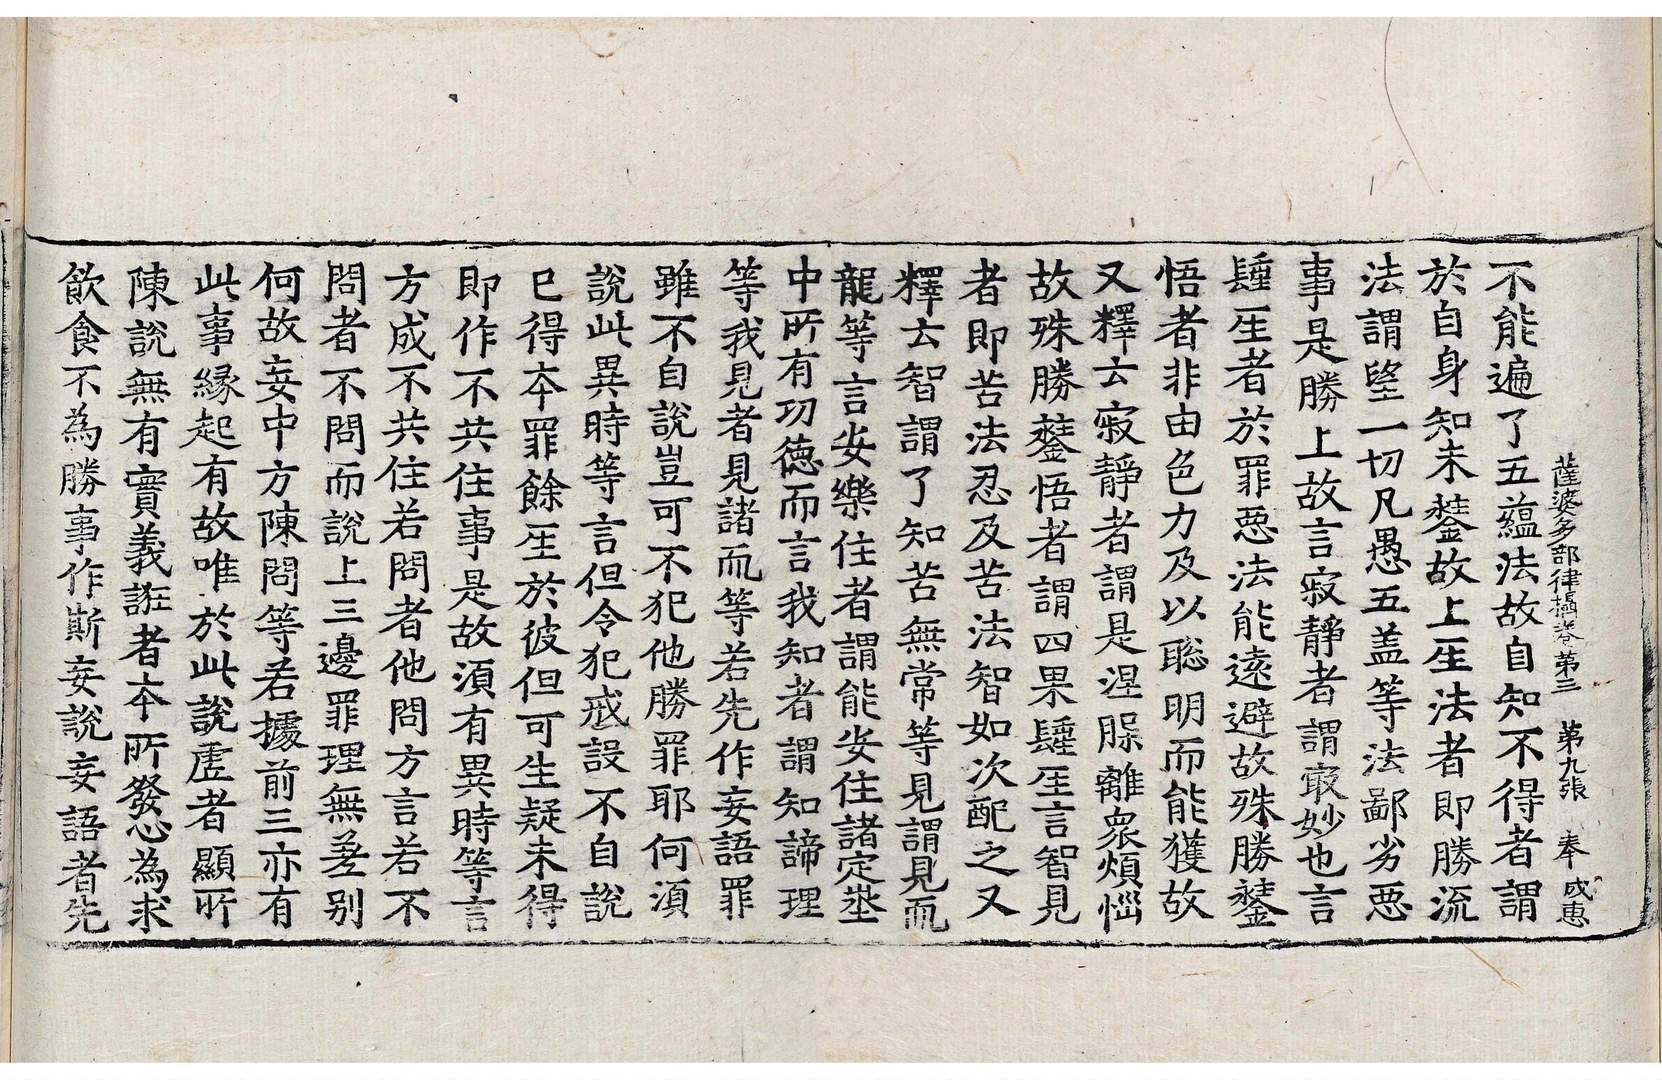 薩婆多部律攝卷第三 第九張 奉 戍惠
不能遍了五蘊法故自知不得者謂
於自身知未𨭻故上𤯔法者即勝流
法謂望一切凡愚五盖等法鄙劣惡
事是勝上故言寂靜者謂寂妙也言
𨲢𤯔者於罪惡法能遠避故殊勝𨭻
悟者非由色力及以聡明而能獲故
又釋云寂靜者謂是涅離衆煩惱
故殊勝𨭻悟者謂四果𨲢𤯔言智見
者即苦法忍及苦法智如次配之又
釋云智謂了知苦無常等見謂見而
龍等言安樂住者謂能安住諸定埊
中所有功德而言我知者謂知諦理
等我見者見諸而等若先作妄語罪
雖不自說豈可不犯他勝罪耶何湏
說此異時等言但令犯戒設不自說
已得本罪餘𤯔於彼但可生疑未得
即作不共住事是故湏有異時等言
方成不共住若問者他問方言若不
問者不問而說上三邊罪理無差别
何故妄中方陳問等若據前三亦有
此事縁起有故唯於此說虛者顯所
陳說無有實義誑者本所發心為求
飲食不為勝事作斯妄說妄語者先